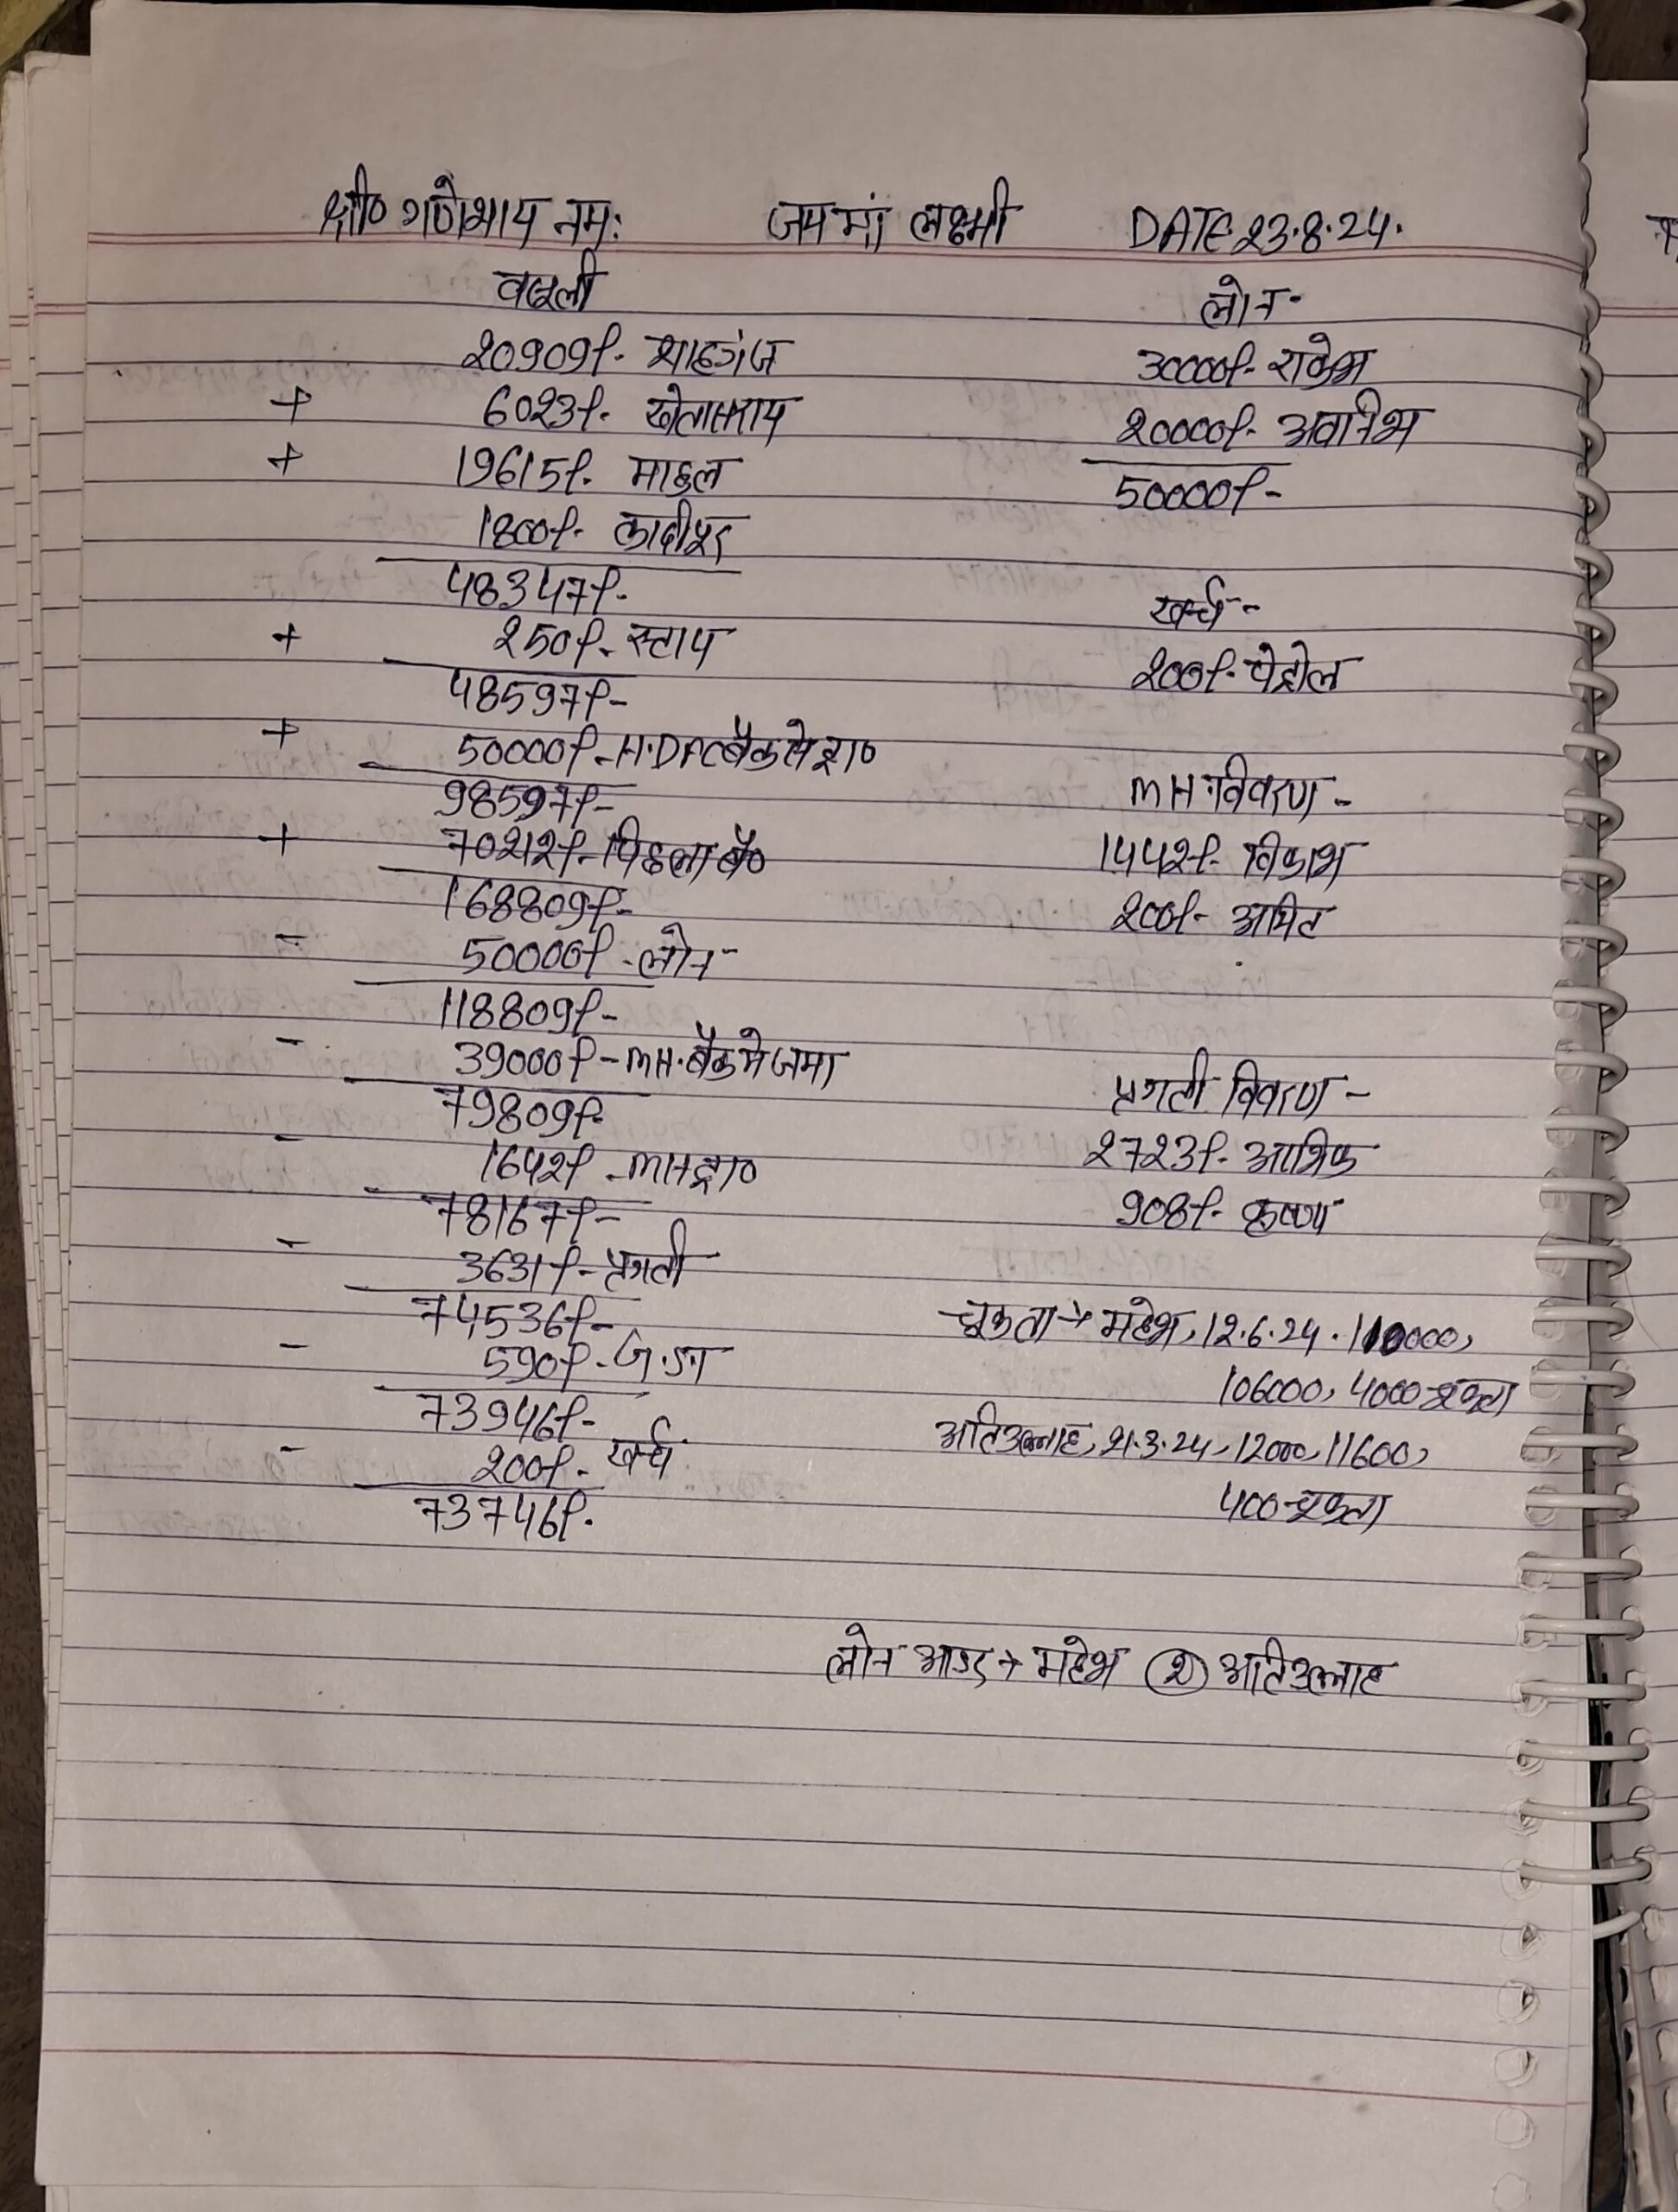 श्री० गणेशाय नमः जय मां लक्ष्मी DATE 23.8.24.
वसूली
20909/- शाहगंज
+ 6023/- खेतासराय
+ 19615/- माहुल
1800/- कादीपुर
48347/-
+ 250/- स्टाप
48597/-
+ 50000/- H.DFC बैंक से प्रा०
98597/-
+ 70212/- पिछला बै०
168809/-
- 50000/- लोन
118809/-
- 39000/- MH. बैंक मे जमा
79809/-
- 1642/- MH द्वा०
78167/-
- 3631/- प्रगती
74536/-
- 590/-
73946/-
- 200/- खर्च
73746/-
लोन-
30000/- राकेश
20000/- अवनिश
50000/-
खर्च--
200/- पेट्रोल
MH. विवरण -
1442/- विकाश
200/- अमित
प्रगती विवरण -
2723/- आशिक
908/- कृष्णा
चूकता → महेश, 12.6.24. 110000,
106000, 4000 चूकता
अतिउल्लाह, 21.3.24, 12000, 11600,
400 चूकता
लोन आउट → महेश (2) अतिउल्लाह